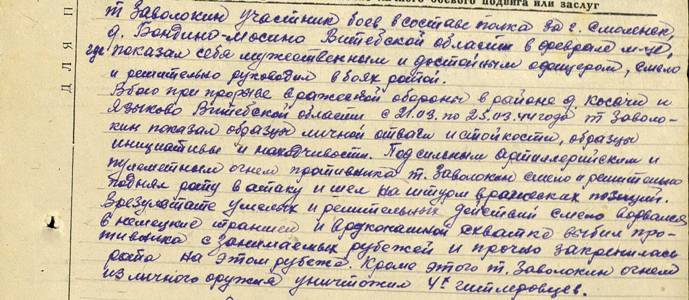 боевого подвига или заслуг
Для п
т Заволокин участник боев в составе полка за г. Смоленск,
д. Бондино-Мосино Витебской области в феврале м-це,
где показал себя мужественным и достойным офицером, смело
и решительно руководил в боях ротой.
В бою при прорыве вражеской обороны в районе д. Косачи и
Языково Витебской области с 21.03. по 25.03.44 года т Заволо-
кин показал образцы личной отваги и стойкости, образцы
инициативы и находчивости. Под сильным артиллерийским и
пулеметным огнем противника т. Заволокин смело и решительно
поднял роту в атаку и шел на штурм вражеских позиций.
В результате умелых и решительных действий смело ворвался
в немецкие траншеи и врукопашной схватке выбил про-
тивника с занимаемых рубежей и прочно закрепилась
рота на этом рубеже. Кроме этого т. Заволокин огнем
из личного оружия уничтожил 4х гитлеровцев.